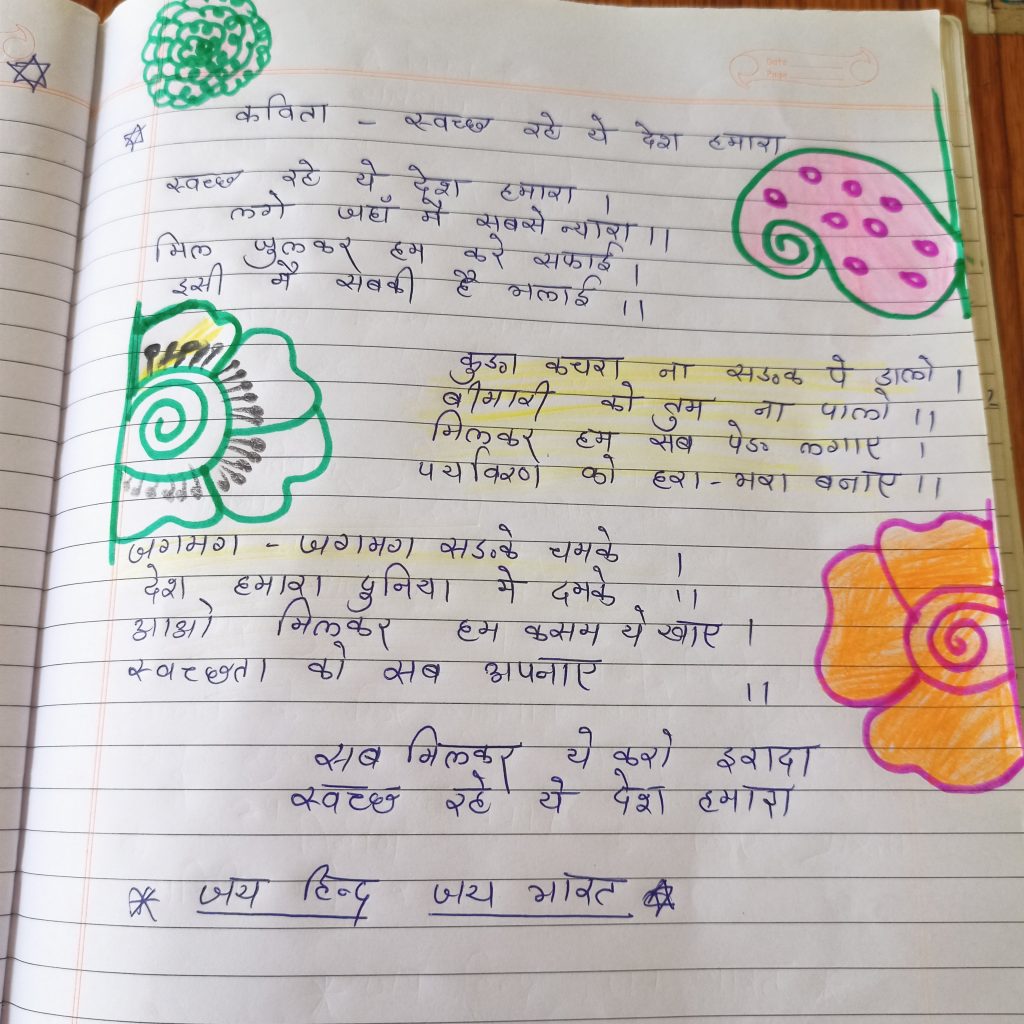 Date
Page
कविता - स्वच्छ रहे ये देश हमारा
स्वच्छ रहे ये देश हमारा ।
लगे जहाँ मै सबसे न्यारा ।।
मिल जुलकर हम करे सफाई ।
इसी मै सबकी है भलाई ।।
कुडा कचरा ना सडक पे डालो ।
बीमारी को तुम ना पालो ।।
मिलकर हम सब पेड लगाए ।
पर्यावरण को हरा-भरा बनाए ।।
जगमग - जगमग सडके चमके ।
देश हमारा दुनिया मे दमके ।।
आओ मिलकर हम कसम ये खाए ।
स्वच्छता को सब अपनाए ।।
सब मिलकर ये करो इरादा
स्वच्छ रहे ये देश हमारा
जय हिन्द जय भारत